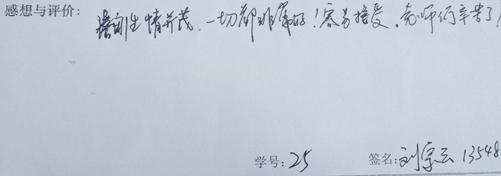 感想与评价：培训生情并茂，一切都非常好！容易接受，老师们辛苦了！
学号：25 签名：刘宗云 13548